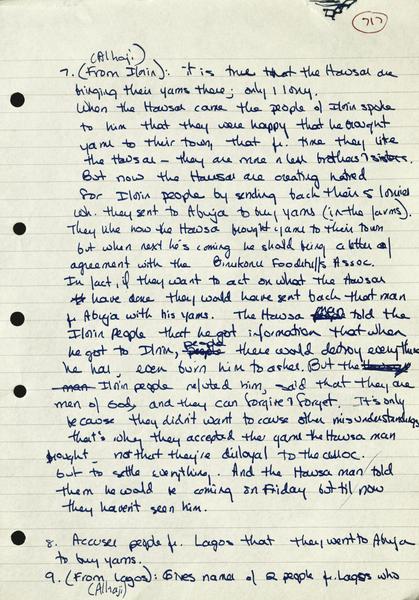 717
(Alhaji)
7. (From Ilorin): it is true that the Hawsas are
bringing their yams there; only 1 lorry.
When the Hawsas came the people of Ilorin spoke
to him that they were happy that he brought
yams to their town, that fr. time they like
the Hawsas - they are more n less brothers n sisters.
But now the Hawsas are creating hatred
for Ilorin people by sending back their 5 lorries
wh. they sent to Abuja to buy yams (in the farms).
They like how the Hawsa brought yams to their town
but when next he's coming he should bring a letter of
agreement with the Binukonu Foodstuffs Assoc.
In fact, if they want to act on what the Hawsas
have done they would have sent back that man
fr Abuja with his yams. The Hawsa told the
Ilorin People that he got information that when
he got to Ilorin, people there would destroy everything
he has, even burn him to ashes. But the
Ilorin people refuted him, said that they are
men of God, and they can forgive n forget. It's only
because they didn't want to cause other misunderstandings
that's why they accepted the yams the Hawsa man
brought - not that they're disloyal to the assoc.
but to settle everything. And the Hawsa man told
them he would be coming on Friday but til now
they haven't seen him.
8. Accuses people fr. Lagos that they went to Abuja
to buy yams.
9. (From Lagos): Gives names of 2 people fr. Lagos who
(Alhaji)